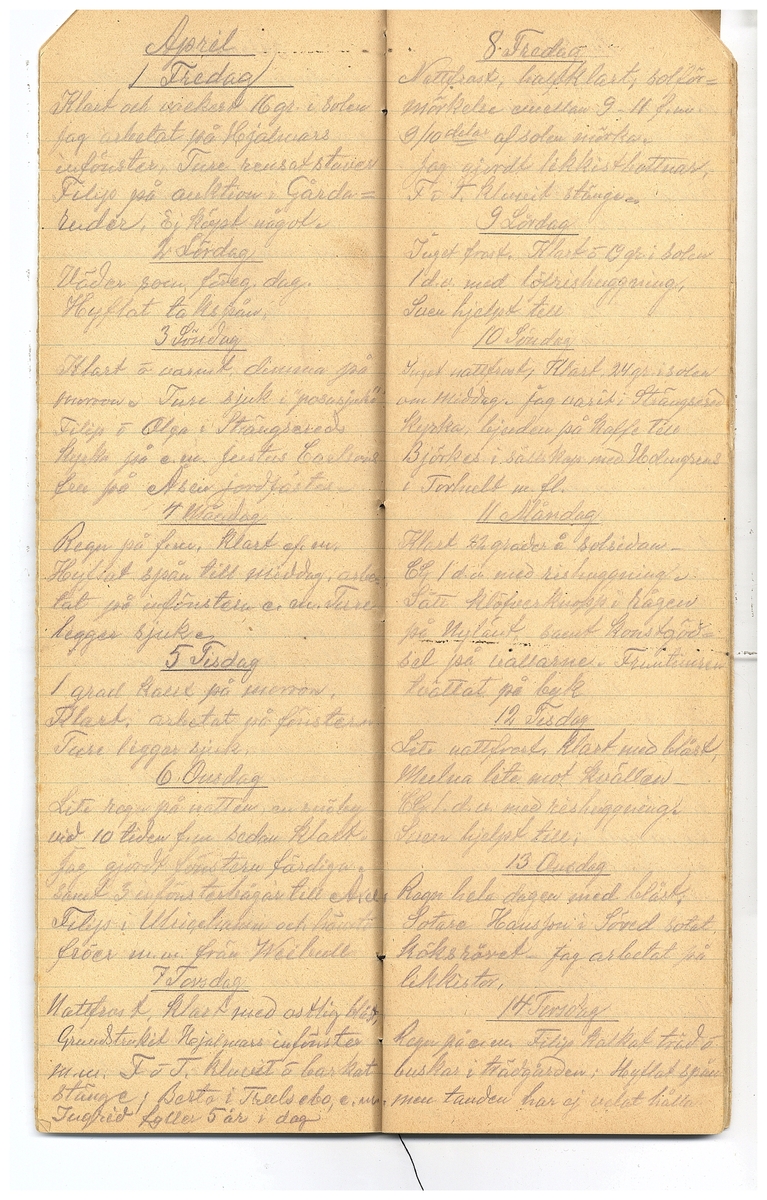 April
1 Fredag
Klart och vackert 16 gr. i solen
jag arbetat på Hjalmars
infönster, Ture rensat staver
Filip på auktion i Gårda=
ruder. Ej köpt något.
2 Lördag
Väder som föreg. dag.
Hyflat takspån.
3 Söndag
Klart o varmt, dimma på
morron. Ture sjuk i
Filip o Olga i Strängsereds
kyrka på e.m. Justus Carlsons
fru på Åsen jordfästes
4 Måndag
Regn på f.m. klart ef.m.
Hyflat spån till middag, arbe-
tat på infönstern e.m. Ture
legger sjuk.
5 Tisdag
1 grad kallt på morron.
Klart, arbetat på fönstern
Ture ligger sjuk.
6 Onsdag
Lite regn på natten, en snöby
vid 10 tiden f.m sedan klart.
Jag gjordt fönstern färdiga.
samt 3 infönsterbågar till
Filip i Ulricehamn och hämtat
fröer m.m. från Weibull
7 Torsdag
Nattfrost, klart med ostlig blåst,
Grundstrukit Hjalmars infönster
m.m. F o T. kluvit o barkat
stänge; Borta i e.m.
Ingrid fyller 5 år i dag
8 Fredag
Nattfrost, halfklart, solför=
mörkelse emellan 9-11 f.m.
9/10 delar af solen mörka.
Jag gjordt likkistbottnar,
F o T. kluvit stänge.
9 Lördag
Inget frost. Klart o gr. i solen
1 d.v. med lövrishuggning,
Sven hjelpt till
10 Söndag
Inget nattfrost, Klart 24 gr. i solen
om middag. Jag varit i Strängsered
kyrka, bjuden på kaffe till
Björkes i sällskap med Holmgrens
i Torhult m.fl.
11 Måndag
Klart 22 grader å solsidan
1 d.v. med rishuggning.
Sått klöfverknopp i rågen
på Nylänt samt konstgöd=
sel på vallarne. Fruntimren
tvättat på byk
12 Tisdag
Lite nattfrost, klart med blåst,
Mulna lite mot kvällen
1 d.v. med rishuggning.
Sven hjelpt till.
13 Onsdag
Regn hela dagen med blåst,
Sotare Hansson i Söved sotat
köksröret. Jag arbetat på
likkistor,
14 Torsdag
Regn på e.m. Filip kalkat träd o
buskar i trädgården; Hyflat spån
men tanden har ej velat hålla